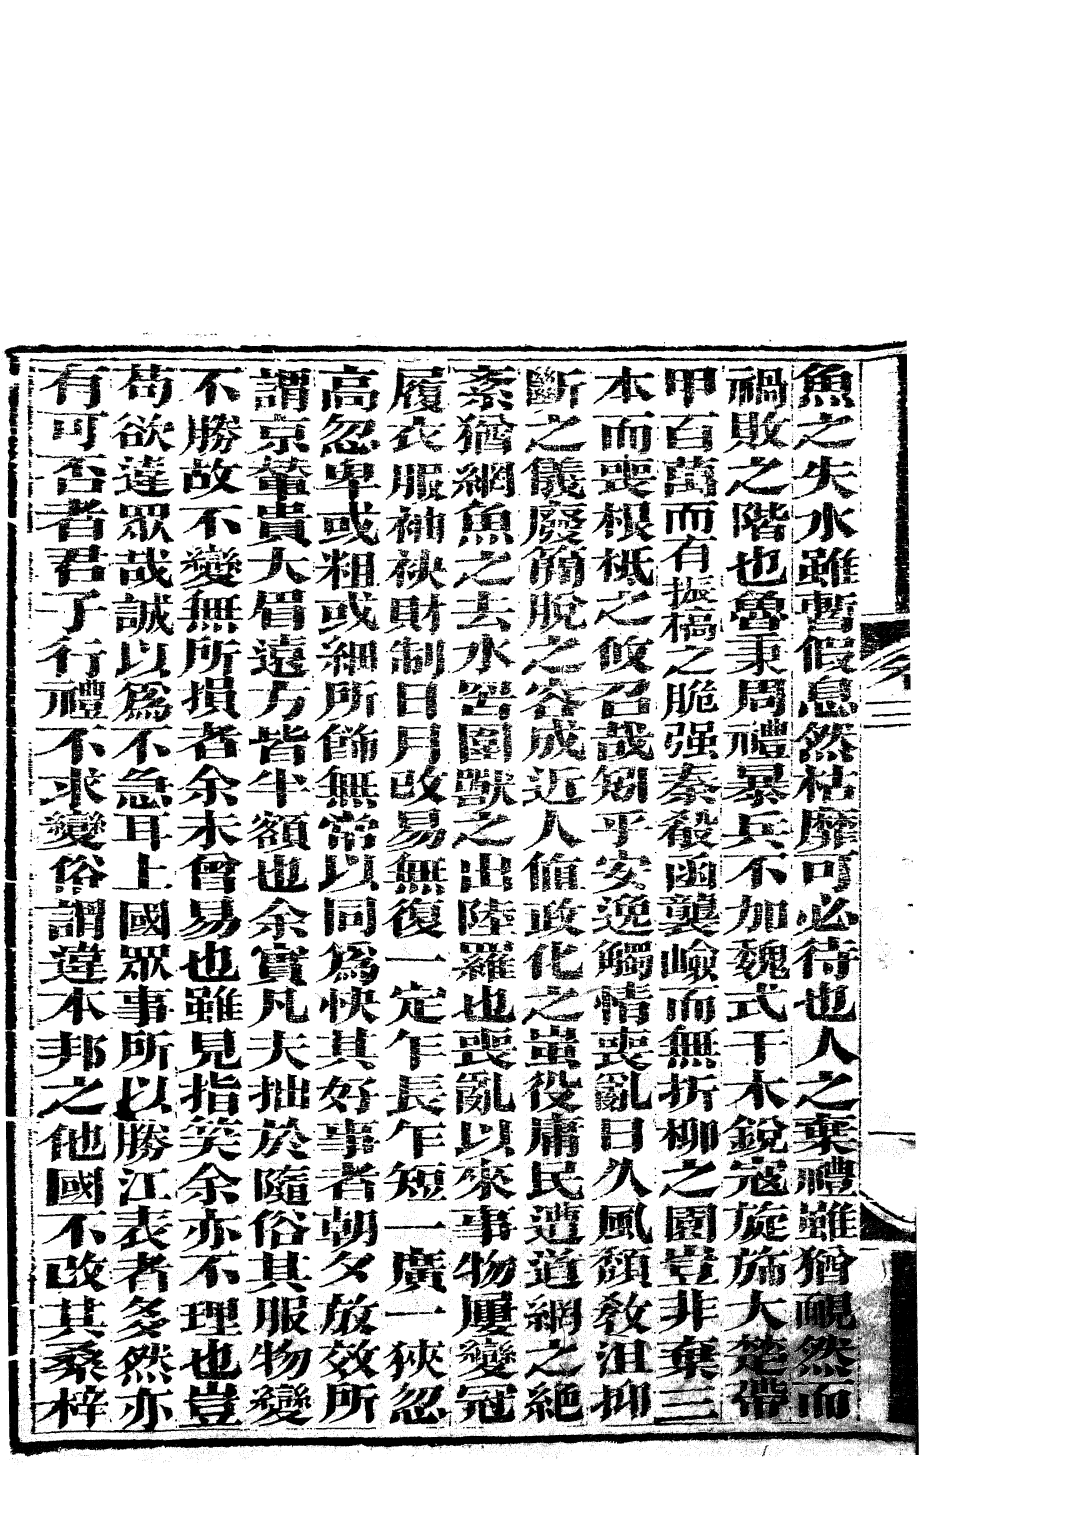 魚之失水雖暫假息然枯靡可必待也人之棄禮雖猶靦然而
禍敗之階也魯秉周禮暴兵不加魏式干木銳寇旋旆大楚帶
甲百萬而有振槁之脆强秦殽函襲嶮而無折柳之固豈非棄三
本而喪根柢之攸召哉矧乎安逸觸情喪亂日久風頹敎沮抑
斷之儀廢簡脫之容成近人值政化之蚩役庸民遭道網之絕
紊猶網魚之去水罟圍獸之出陸羅也喪亂以來事物屢變冠
履衣服袖袂財制日月改易無復一定乍長乍短一廣一狹忽
高忽卑或粗或細所飾無常以同爲快其好事者朝夕放效所
謂京輦貴大眉遠方皆半額也余實凡夫拙於隨俗其服物變
不勝故不變無所損者余未曾易也雖見指笑余亦不理也豈
苟欲違眾哉誠以爲不急耳上國眾事所以勝江表者多然亦
有可否者君子行禮不求變俗謂違本邦之他國不改其桑梓